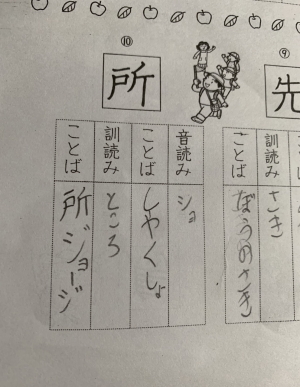 ⑨
先
訓読み
さき
ことば
ぼうのさき
⑩
所
音読み
ショ
ことば
しやくしょ
訓読み
ところ
ことば
所ジョージ